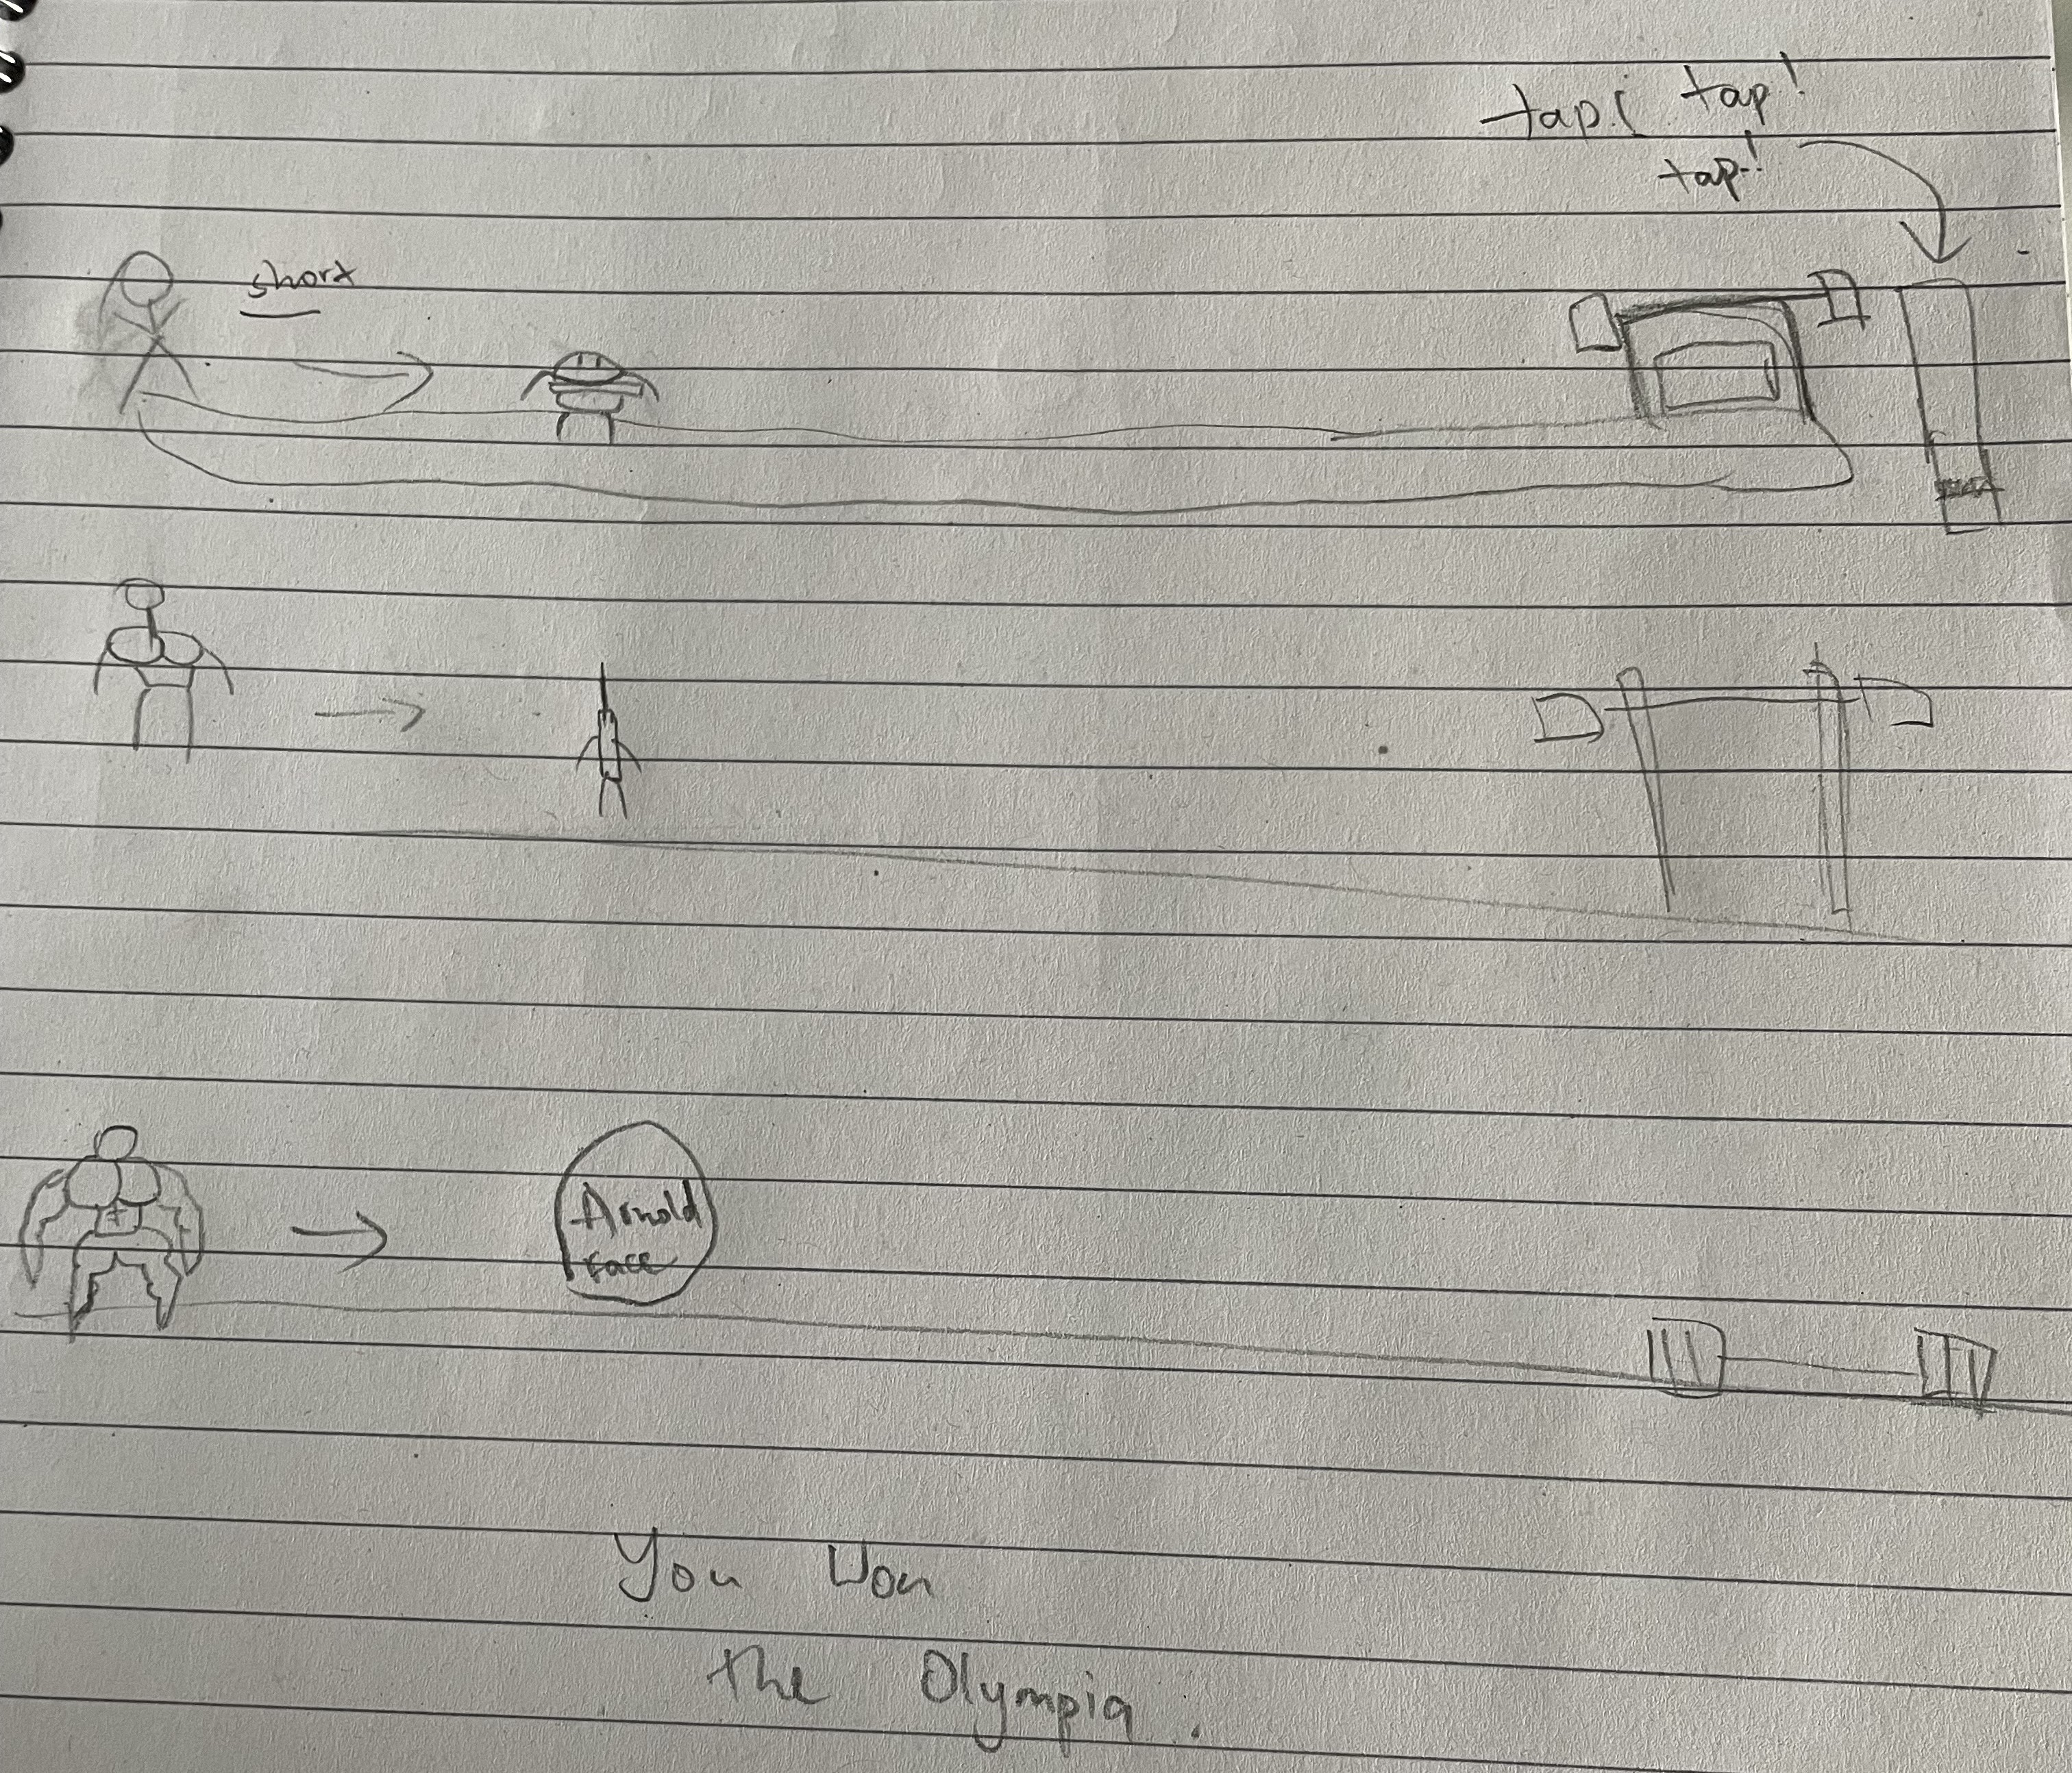 tap! tap!
tap!
short
Arnold
face
You Won
the Olympia.